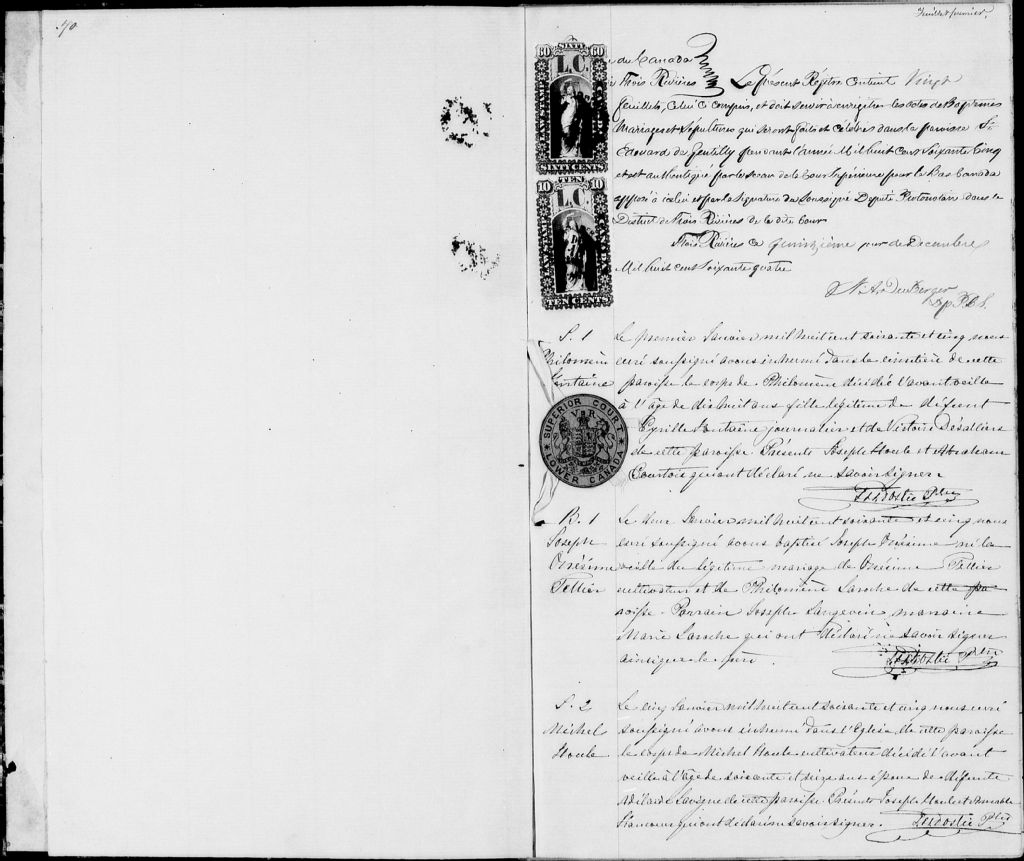 70
Feuillet premier.
SIXTY
60 60
L.C.
LAW STAMP
SIXTY CENTS
TEN
10 10
L.C.
TEN CENTS
du Canada
Trois Rivières Le présent Régistre Contient Vingt
feuillets, Celui Ci Compris, et doit servir à enrégistrer les actes de Baptêmes
Mariages et Sépultures qui seront faits et célébrés dans la paroisse St
Edouard de Gentilly pendant l'année Mil huit Cent Soixante Cinq
et est authentiqué par le sceau de la Cour Supérieure pour le Bas Canada
apposé à icelui et par la Signature du Soussigné Député Protonotaire dans le
District de Trois Rivières de la dite Cour
Trois Rivières Ce quinzième jour de Décembre
Mil huit cent soixante quatre
S. 1
Philomène
Fontaine
Le premier Janvier mil huit cent soixante et cinq nous
curé soussigné avons inhumé dans le cimetière de cette
paroisse le corps de Philomène décédée l'avant veille
à l'âge de dix huit ans fille légitime de défunt
Cyrille Fontaine journalier et de Victoire Désalliers
de cette paroisse. Présents Joseph Houle et Abraham
Courtois qui ont déclaré ne savoir signer
Ptre
SUPERIOR COURT
V R
LOWER CANADA
B. 1
Joseph
Onésime
Tellier
Le deux Janvier mil huit cent soixante et cinq nous
curé soussigné avons baptisé Joseph Onésime né la
veille du légitime mariage de Onésime Tellier
cultivateur et de Philomène Laroche de cette pa
roisse. Parrain Joseph Langevin, marraine
Marie Laroche qui ont déclaré ne savoir signer
ainsi que le père.
Ptre
S. 2
Michel
Houle
Le cinq Janvier mil huit cent soixante et cinq nous curé
soussigné avons inhumé dans l'Eglise de cette paroisse
le corps de Michel Houle cultivateur décédé l'avant
veille à l'âge de soixante et seize ans époux de défunte
Adélaïde Lavigne de cette paroisse. Présents Joseph Houle et Aimable
qui ont déclaré ne savoir signer. Ptre